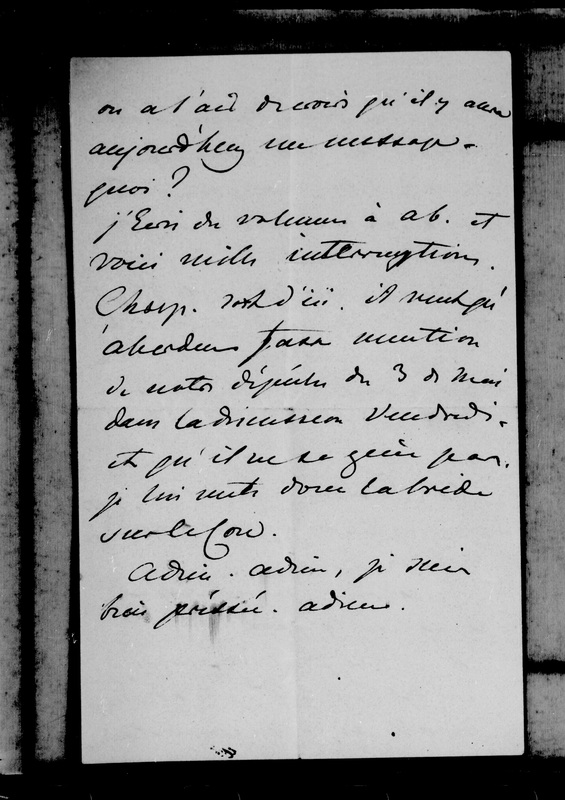 on a l'air de croire qu'il y aura
aujourd'huy un message.
quoi ?
j'écris des volumes à ab. et
voici mille interruptions.
Chasp. sort d'ici. il veut qu'
aberdeen fasse mention
de notre dépêche du 3 de mai
dans la discussion Vendredi.
et qu'il ne se gêne pas.
je lui mets donc la bride
sur le Cou.
adieu. adieu, je suis
bien pressée. adieu.